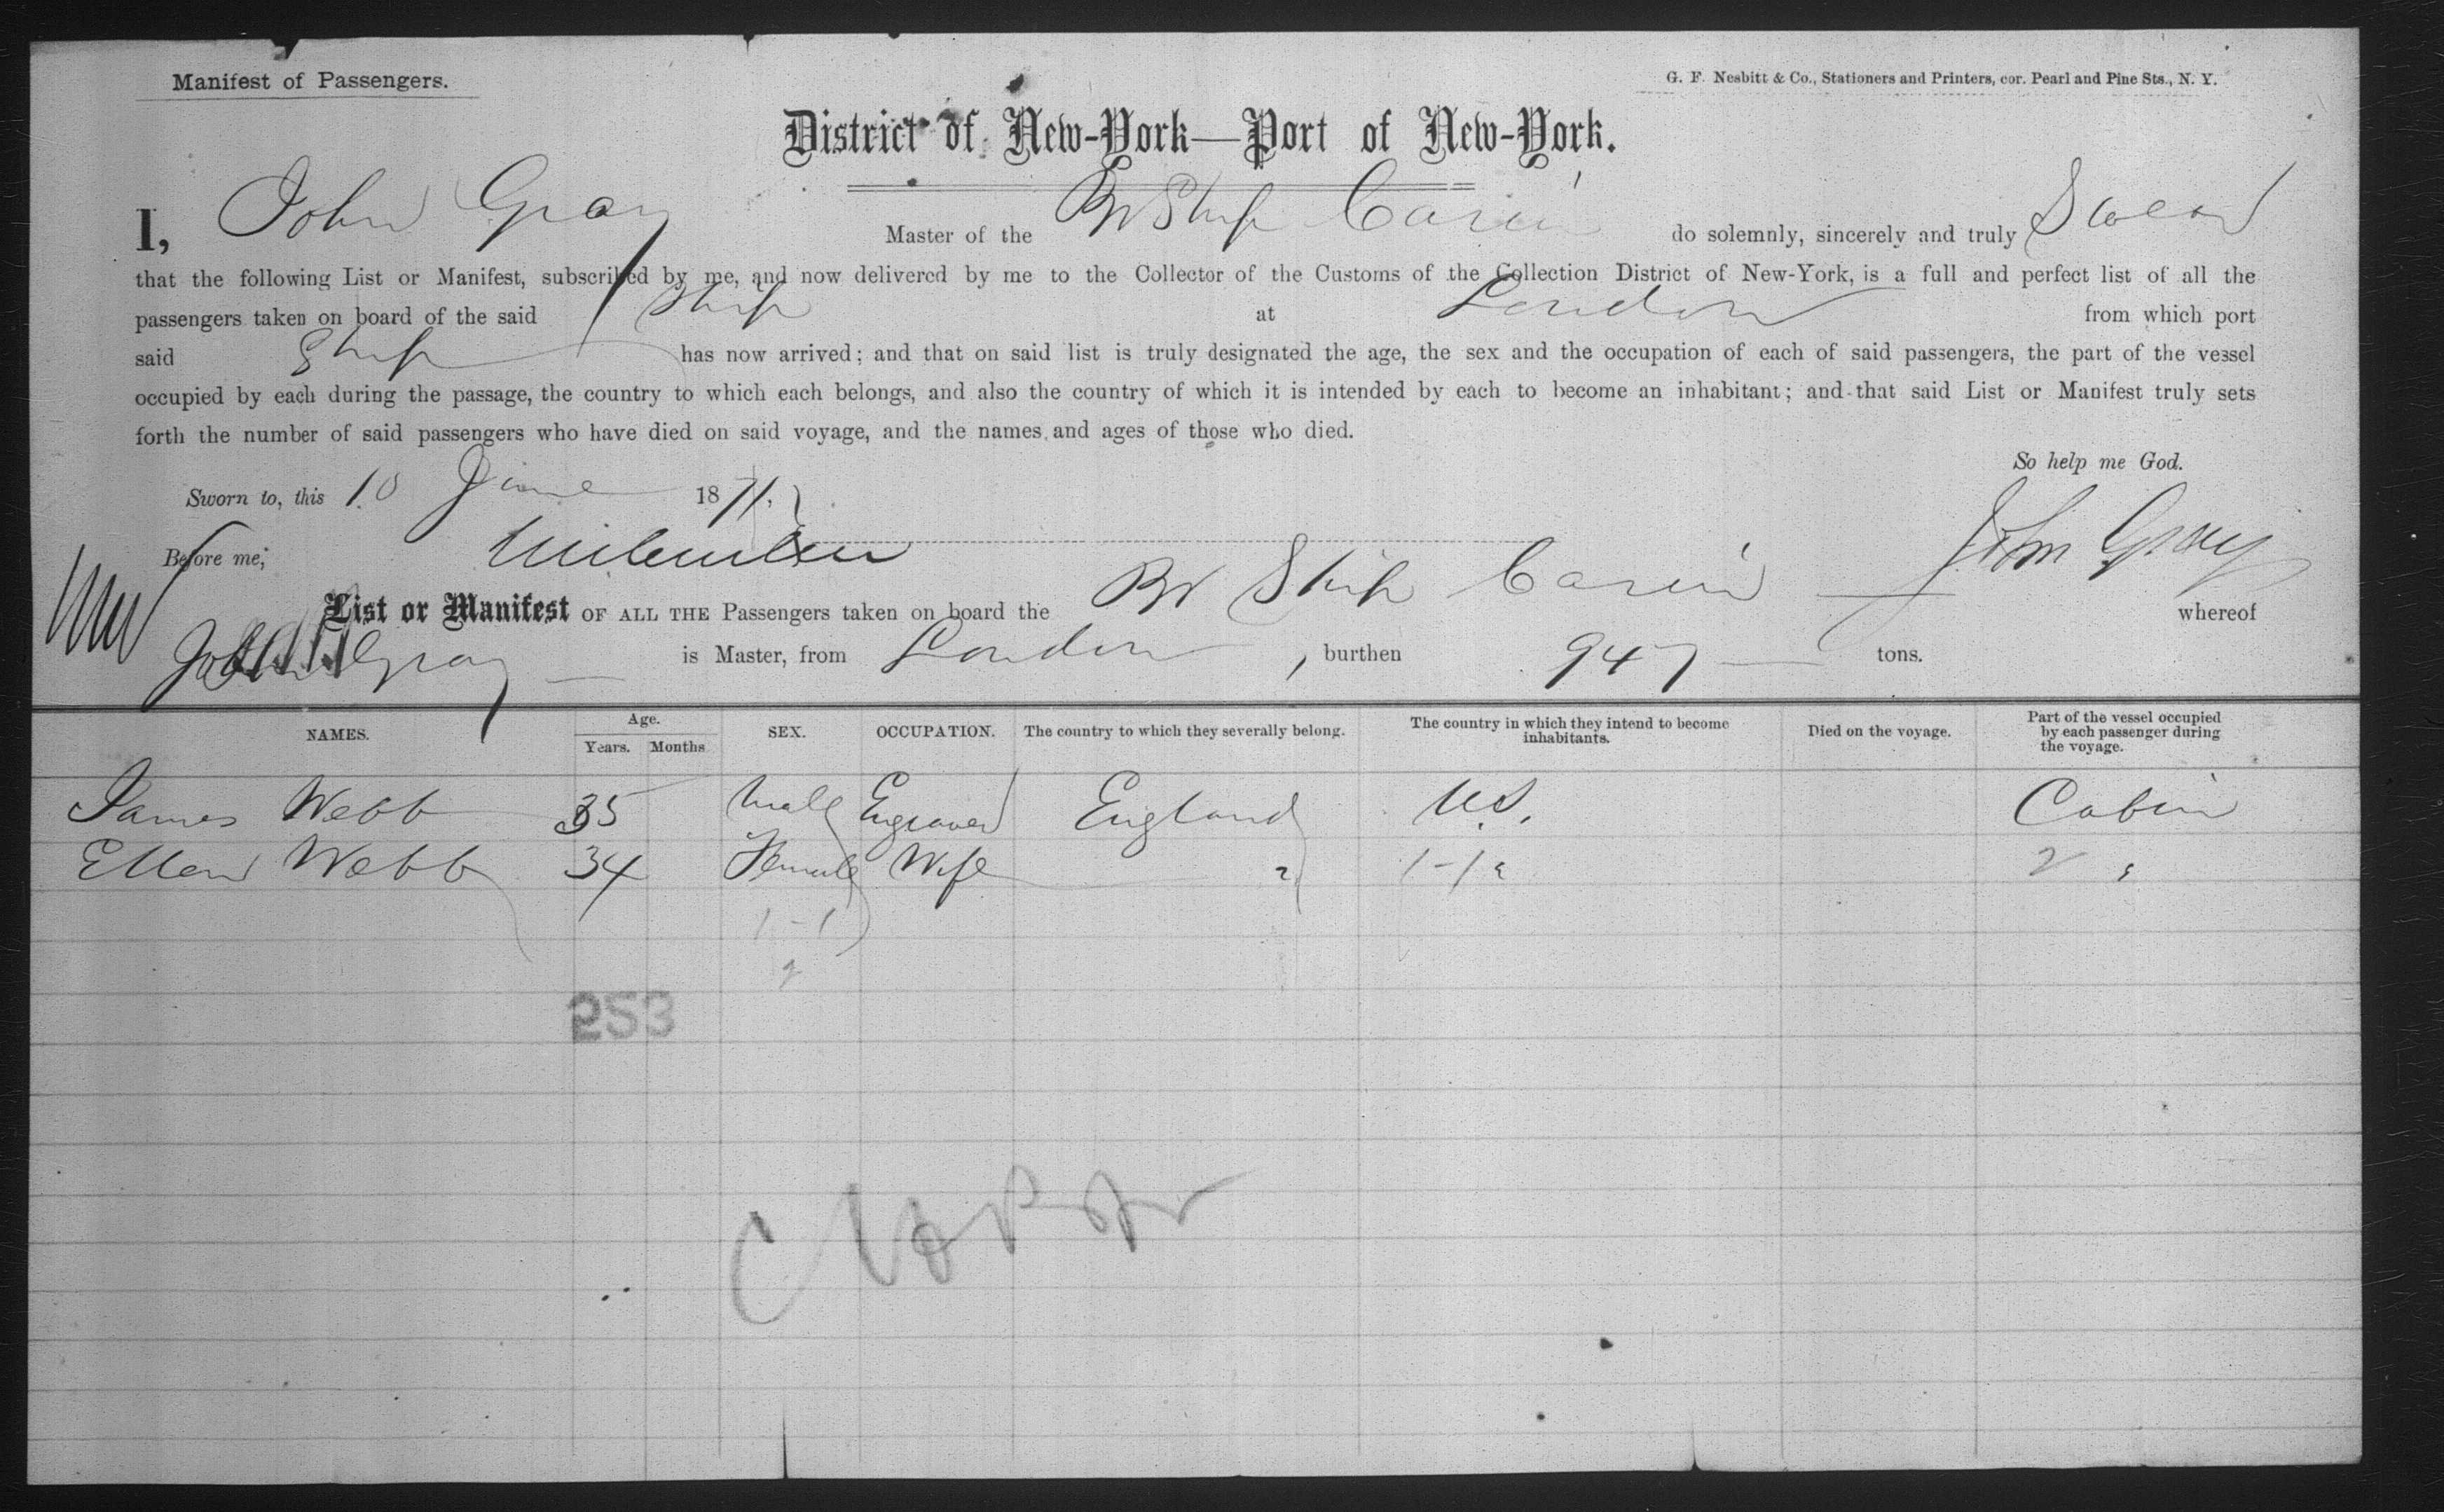 Manifest of Passengers.
G. F. Nesbitt & Co., Stationers and Printers, cor. Pearl and Pine Sts., N. Y.
District of New-York—Port of New-York.
I, John Gray Master of the Br Ship do solemnly, sincerely and truly Swear
that the following List or Manifest, subscribed by me, and now delivered by me to the Collector of the Customs of the Collection District of New-York, is a full and perfect list of all the
passengers taken on board of the said Ship at London from which port
said Ship has now arrived; and that on said list is truly designated the age, the sex and the occupation of each of said passengers, the part of the vessel
occupied by each during the passage, the country to which each belongs, and also the country of which it is intended by each to become an inhabitant; and that said List or Manifest truly sets
forth the number of said passengers who have died on said voyage, and the names and ages of those who died.
So help me God.
Sworn to, this 10 June 1871.
Before me, John Gray
List or Manifest OF ALL THE Passengers taken on board the Br Ship whereof
John Gray is Master, from London, burthen 947 tons.
NAMES. Age. Years. Months SEX. OCCUPATION. The country to which they severally belong. The country in which they intend to become inhabitants. Died on the voyage. Part of the vessel occupied by each passenger during the voyage.
James Webb 35 Male Engraver England U.S. Cabin
Ellen Webb 34 Female Wife 2 1-1 2
1-1
2
253